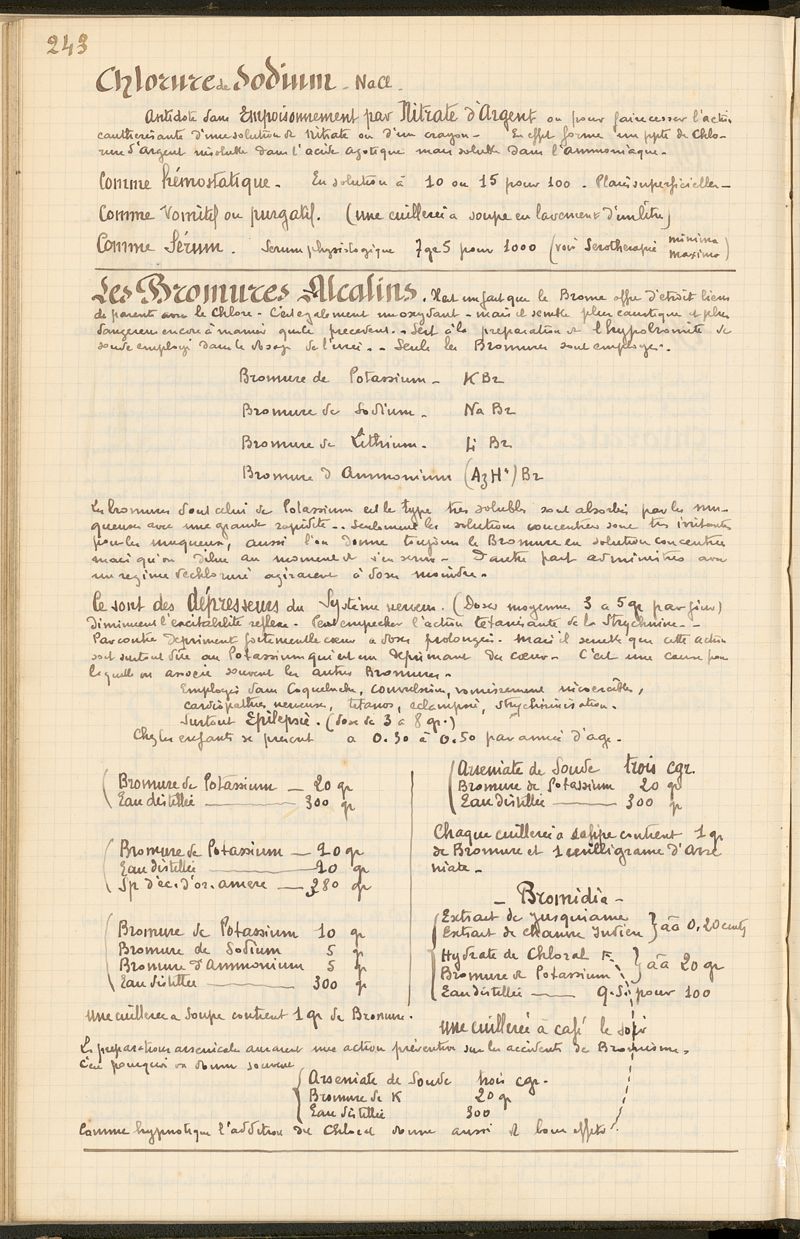 243
Chlorure de Sodium - NaCl
Antidote dans Empoisonnement par Nitrate d'Argent ou pour faire cesser l'action
cauthérisante d'une solution de Nitrate ou d'un crayon - En effet forme un ppté de Chlo-
rure d'argent insoluble dans l'acide azotique mais soluble dans l'ammoniaque -
Comme hémostatique - En solution à 10 ou 15 pour 100 - Plaies superficielles -
Comme Vomitif ou purgatif. (une cuillerée à soupe en lavement d'un litre)
Comme Sérum. Serum physiologique 7 gr 5 pour 1000 (voir Serotherapie minima
maxima)
Les Bromures Alcalins. Il est un fait que le Brome offre d'étroit liens
de parenté avec le Chlore - C'est également un oxydant - mais il semble plus caustique et plus
dangereux encore à manier que le precedent - Sert à la preparation de l'hypobromite de
soude employé dans le dosage de l'urée. - Seuls les Bromures sont employés.
Bromure de Potassium - KBr
Bromure de Sodium - NaBr
Bromure de Lithium - Li Br
Bromure d'Ammonium (AzH⁴)Br
Les bromures dont celui de Potassium est le type très solubles sont absorbés par les mu-
queuses avec une grande rapidité - Seulement les solutions concentrées sont très irritantes
pour les muqueuses, aussi l'on donne toujours le Bromure en solution concentrée
mais qu'on dilue au moment de s'en servir - D'autre part administrés avec
un regime dechloruré agiraient à doses moindre.
Ce sont des dépresseurs du Système nerveux. (Doses moyennes 3 a 5 gr par jour)
Diminuent l'excitabilité reflexe - Peut empecher l'action tetanisante de la Strychnine -
Par contre depriment fortement le cœur a doses prolongées - mais il semble que cette action
soit surtout dûe au Potassium qui est un deprimant du cœur - C'est une cause pour
laquelle on associe souvent les autres Bromures -
Employés dans Coqueluche, convulsions, vomissement incoercibles,
cardiopathies nerveuse, tetanos, eclampsie, strychninisation.
Surtout Epilepsie. (dose de 3 a 8 gr.)
Chez les enfants se prescrit a 0.30 à 0.50 par année d'age.
Bromure de Potassium - 20 gr
Eau distillée 300 gr
Bromure de Potassium - 20 gr
Eau distillée 20 gr
Sp d'ec. d'or. amère - 280 gr
Bromure de Potassium 10 gr
Bromure de Sodium 5 gr
Bromure d'Ammonium 5 gr
Eau distillée 300 gr
une cuillerée a soupe contient 1 gr de Bromure.
Arseniate de Soude trois cgr.
Bromure de Potassium 20 gr
Eau distillée 300 gr
Chaque cuillerée a soupe contient 1 gr
de Bromure et 1 milligrame d'Arse
niate -
- Bromidia -
Extrait de Jusquiame
Extrait de Chanvre Indien } āā 0,20 centg
Hydrate de Chloral
Bromure de Potassium } āā 20 gr
Eau distillée q.s. pour 100
une cuillerée à café le soir
Les preparations arsenicales auraient une action préventive sur les accidents de Bromisme.
C'est pourquoi on donne souvent
Arseniate de Soude trois cgr.
Bromure de K 20 gr
Eau distillée 300
Comme hypnotique l'addition du Chloral donne aussi de bons effets